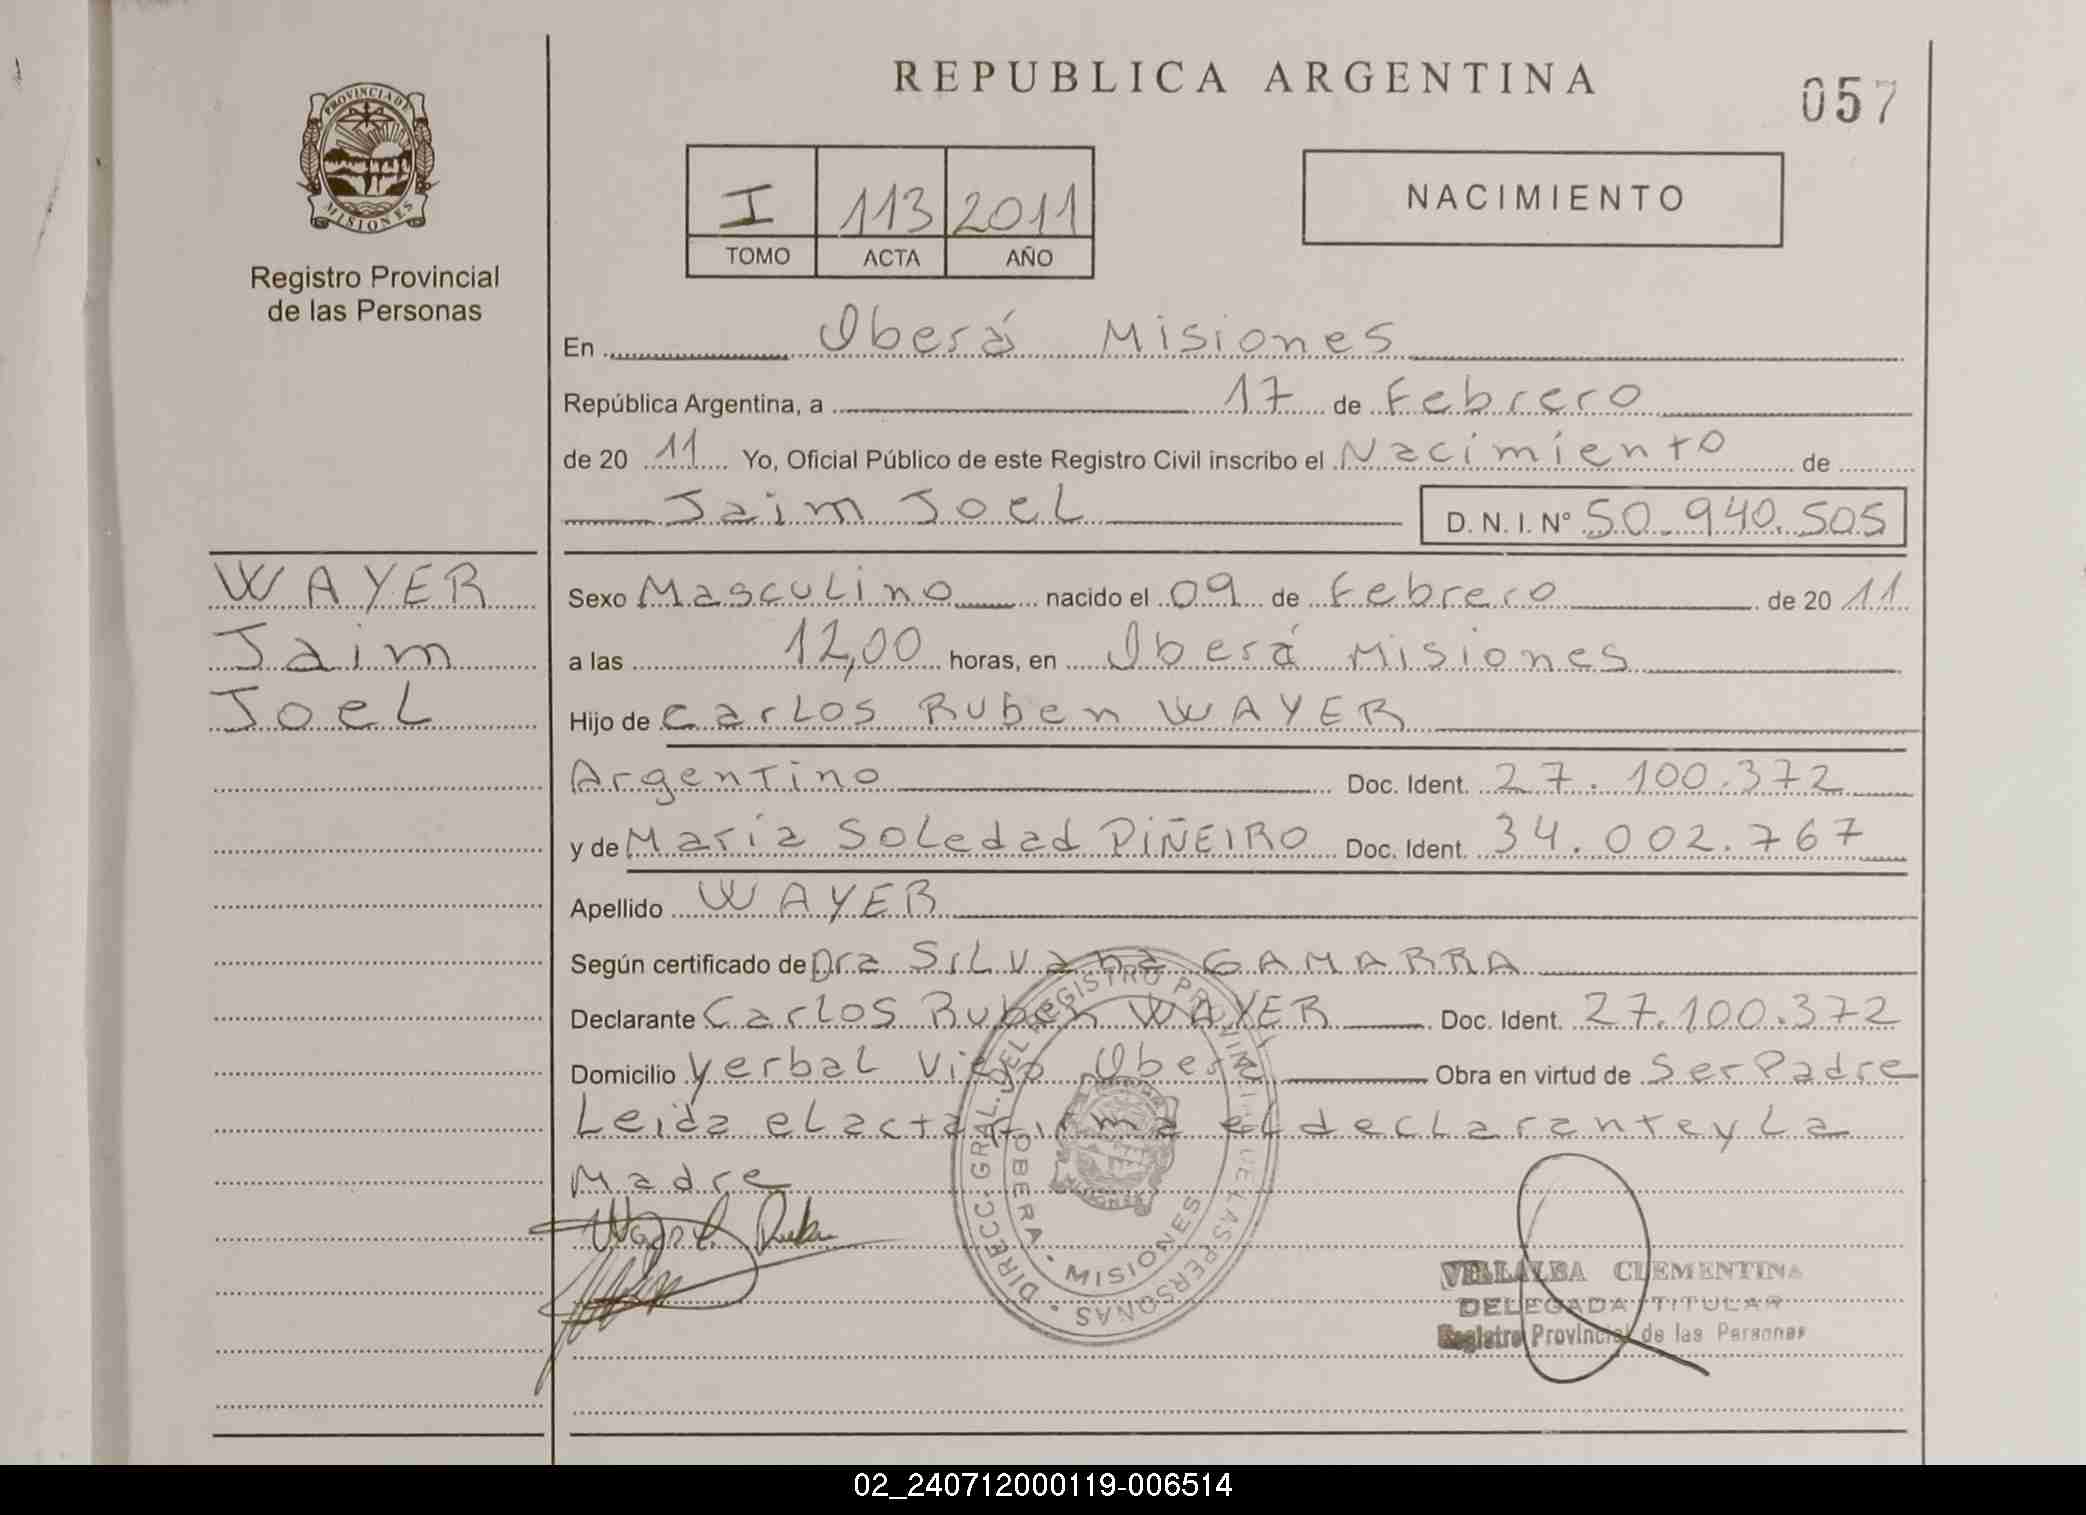 REPUBLICA ARGENTINA
057
PROVINCIA DE
MISIONES
Registro Provincial
de las Personas
I 113 2011
TOMO ACTA AÑO
NACIMIENTO
En Oberá Misiones
República Argentina, a 17 de Febrero
de 20 11 Yo, Oficial Público de este Registro Civil inscribo el Nacimiento de
Jaim Joel D. N. I. Nº 50.940.505
WAYER
Jaim
Joel
Sexo Masculino nacido el 09 de Febrero de 20 11
a las 12,00 horas, en Oberá Misiones
Hijo de Carlos Ruben WAYER
Argentino Doc. Ident. 27.100.372
y de María Soledad PIÑEIRO Doc. Ident. 34.002.767
Apellido WAYER
Según certificado de Dra Silvana GAMARRA
Declarante Carlos Ruben WAYER Doc. Ident. 27.100.372
Domicilio Yerbal Viejo Oberá Obra en virtud de Ser Padre
Leida el acta firma el declarante y La
Madre
DIRECC. GRAL. DEL REGISTRO PROVINCIAL DE LAS PERSONAS
OBERA - MISIONES
MISIONES
VILLALBA CLEMENTINA
DELEGADA TITULAR
Registro Provincial de las Personas
02_240712000119-006514